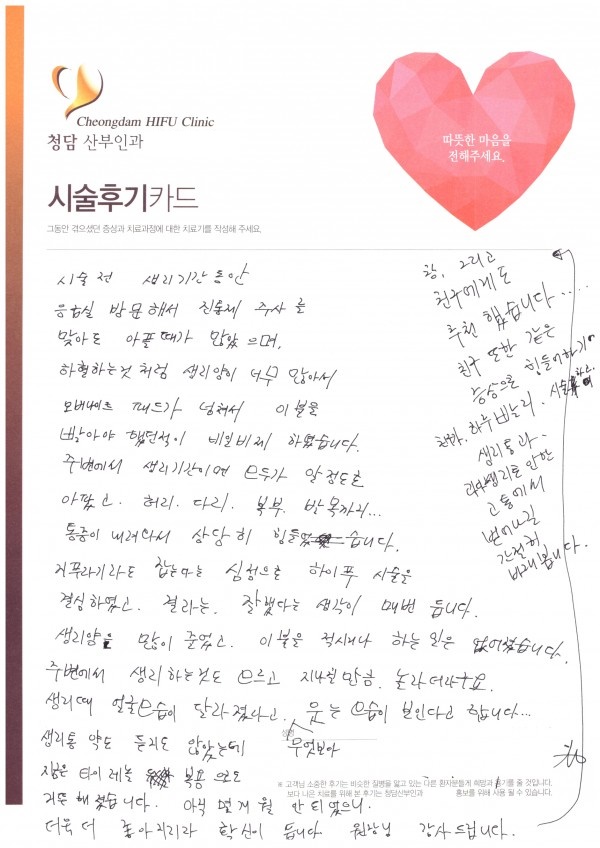 Cheongdam HIFU Clinic
청담 산부인과
따뜻한 마음을
전해주세요.
시술후기카드
그동안 겪으셨던 증상과 치료과정에 대한 치료기를 작성해 주세요.
시술 전 생리기간동안
응급실 방문해서 진통제 주사를
맞아도 아플때가 많았으며,
하혈하는것 처럼 생리양이 너무 많아서
오버나이트 패드가 넘쳐서 이불을
빨아야 했던적이 비일비재 하였습니다.
주변에서 생리기간이면 모두가 알정도로
아팠고. 허리. 다리. 복부. 발목까지...
통증이 내려와서 상당히 힘들었습니다.
지푸라기라도 잡는다는 심정으로 하이푸 시술을
결심하였고. 결과는. 잘했다는 생각이 매번 듭니다.
생리양은 많이 줄었고. 이불을 적시거나 하는 일은 없어졌습니다.
주변에서 생리하는것도 모르고 지나칠만큼. 놀라더라구요.
생리때 얼굴모습이 달라졌다고. 웃는 모습이 보인다고 합니다...
생리통 약도 듣지도 않았는데 무엇보다
성명
지금은 타이레놀 복용으로
가능해졌습니다. 아직 몇개월 안되었으니.
더욱 더 좋아지리라 확신이 듭니다. 원장님 감사드립니다.
참. 그리고
친구에게도
추천 했습니다.....
친구 또한 같은
증상으로 힘들어하기에
하루빨리. 시술
생리통과
생리로 인한
고통에서
벗어나길
간절히
바래봅니다.
※ 고객님 소중한 후기는 비슷한 질병을 앓고 있는 다른 환자분들게 희망과 용기를 줄 것입니다.
보다 나은 치료를 위해 본 후기는 청담산부인과 홍보를 위해 사용 될 수 있습니다.